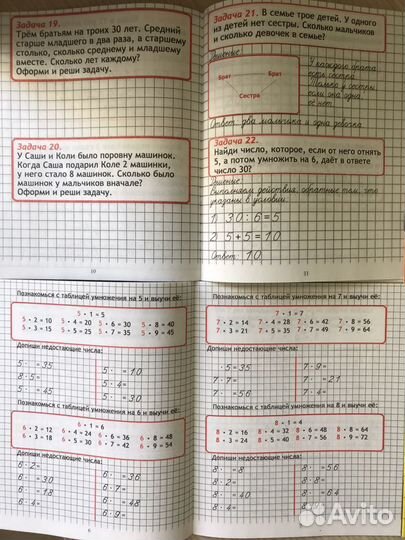 Задача 19.
Трём братьям на троих 30 лет. Средний
старше младшего в два раза, а старшему
столько, сколько среднему и младшему
вместе. Сколько лет каждому?
Оформи и реши задачу.
Задача 20.
У Саши и Коли было поровну машинок.
Когда Саша подарил Коле 2 машинки,
у него стало 8 машинок. Сколько было
машинок у мальчиков вначале?
Оформи и реши задачу.
10
Задача 21. В семье трое детей. У одного
из детей нет сестры. Сколько мальчиков
и сколько девочек в семье?
Решение:
Брат
Брат
Сестра
У каждого брата
есть сестра.
Только у сестры,
если она одна,
её нет.
Ответ: два мальчика и одна девочка.
Задача 22.
Найди число, которое, если от него отнять
5, а потом умножить на 6, даёт в ответе
число 30?
Решение:
Выполняем действия, обратные тем, что
указаны в условии.
1) 30 : 6 = 5
2) 5 + 5 = 10
Ответ: 10
11
Познакомься с таблицей умножения на 5 и выучи её:
5 · 1 = 5
5 · 2 = 10 5 · 4 = 20 5 · 6 = 30 5 · 8 = 40
5 · 3 = 15 5 · 5 = 25 5 · 7 = 35 5 · 9 = 45
Допиши недостающие числа:
5 · = 35
8 · 5 =
5 · = 45
5 · = 10
5 · 4 =
5 · = 30
Познакомься с таблицей умножения на 6 и выучи её:
6 · 1 = 6
6 · 2 = 12 6 · 4 = 24 6 · 6 = 36 6 · 8 = 48
6 · 3 = 18 6 · 5 = 30 6 · 7 = 42 6 · 9 = 54
Допиши недостающие числа:
6 · 2 =
6 · = 30
6 · = 18
6 · 4 =
6 · = 36
6 · 7 =
6 · = 48
6 · 9 =
6
Познакомься с таблицей умножения на 7 и выучи её:
7 · 1 = 7
7 · 2 = 14 7 · 4 = 28 7 · 6 = 42 7 · 8 = 56
7 · 3 = 21 7 · 5 = 35 7 · 7 = 49 7 · 9 = 64
Допиши недостающие числа:
· 5 = 35
7 · 7 =
7 · = 56
7 · 9 =
7 · = 21
7 · 4 =
Познакомься с таблицей умножения на 8 и выучи её:
8 · 1 = 4
8 · 2 = 16 8 · 4 = 32 8 · 6 = 48 8 · 8 = 64
8 · 3 = 24 8 · 5 = 40 8 · 7 = 56 8 · 9 = 72
Допиши недостающие числа:
8 · = 8
8 · 2 =
8 · = 40
8 · 4 =
8 · = 56
8 · 3 =
8 · = 64
8 · 6 =
Avito